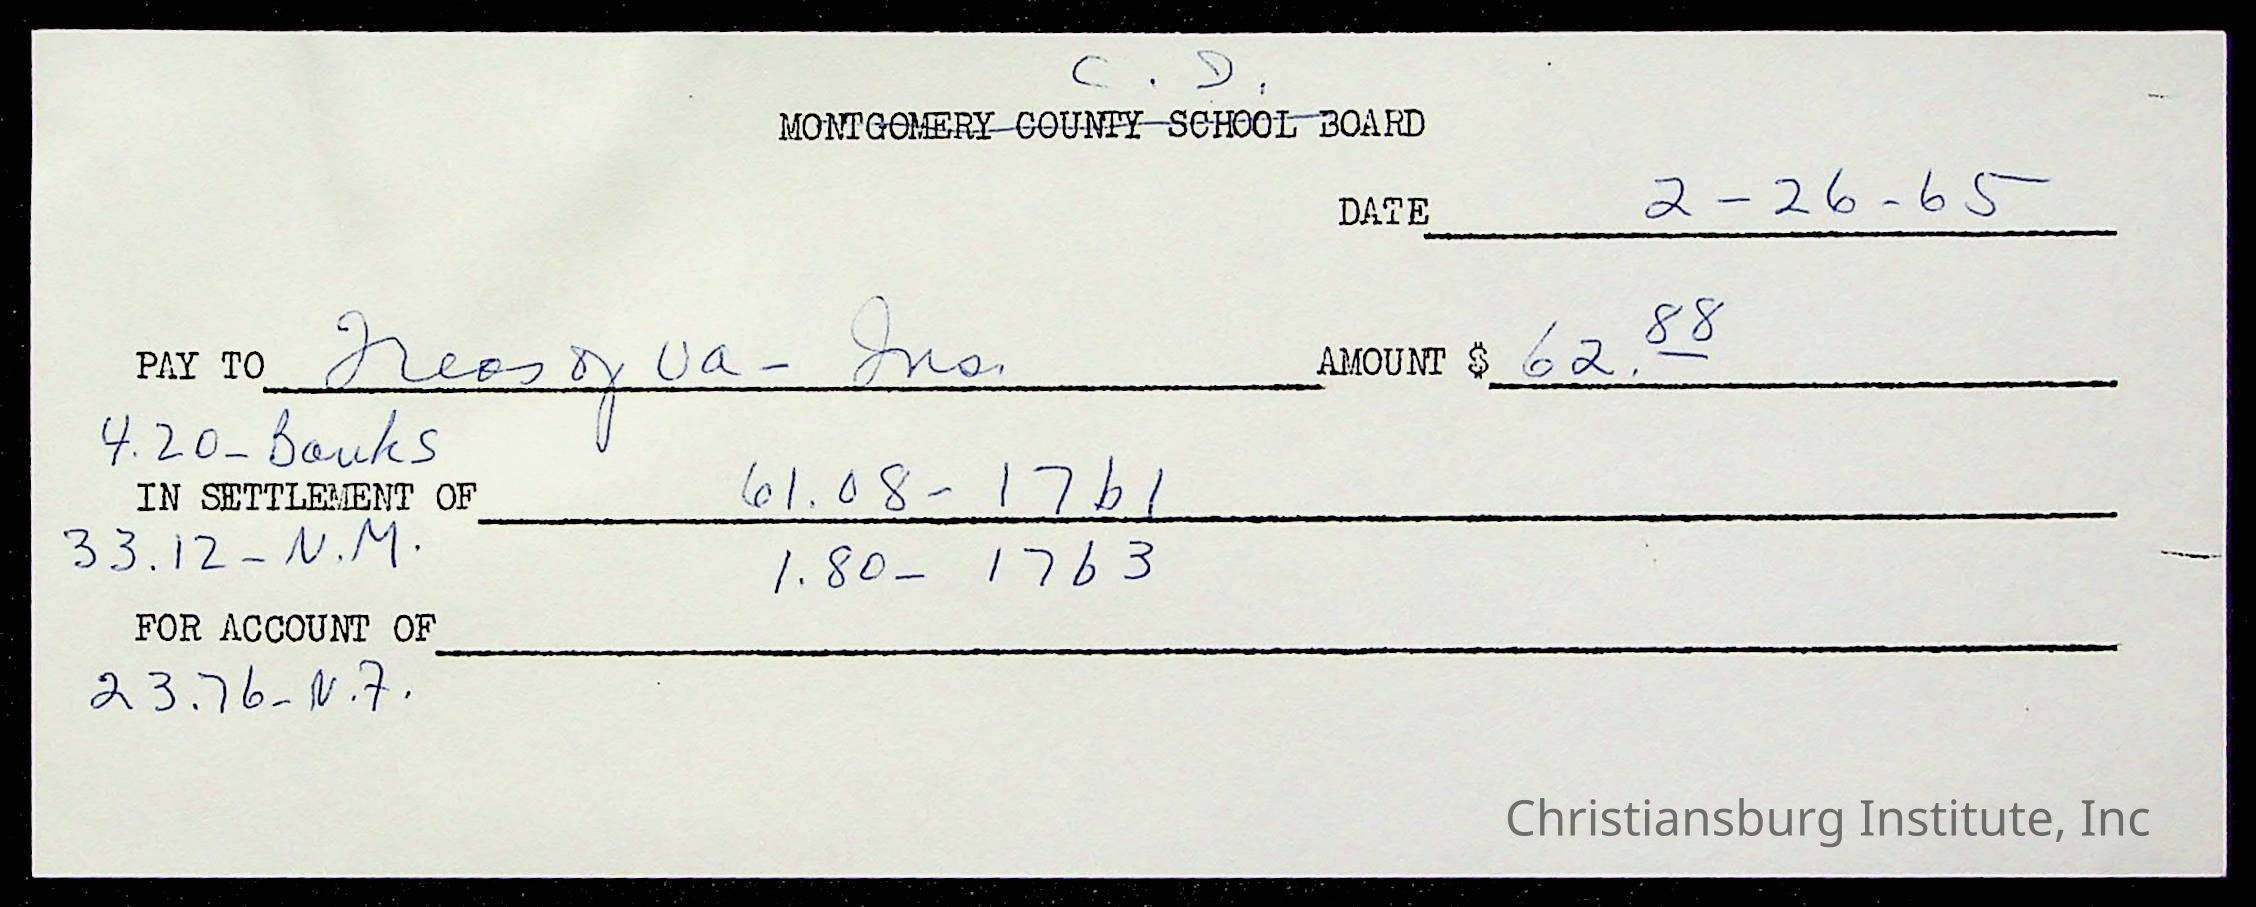 C. D.
MONTGOMERY COUNTY SCHOOL BOARD
DATE 2-26-65
PAY TO Treas of Va - Ins. AMOUNT $ 62.88
4.20- Banks
IN SETTLEMENT OF 61.08- 1761
33.12- N.M. 1.80- 1763
FOR ACCOUNT OF
23.76- N.F.
Christiansburg Institute, Inc